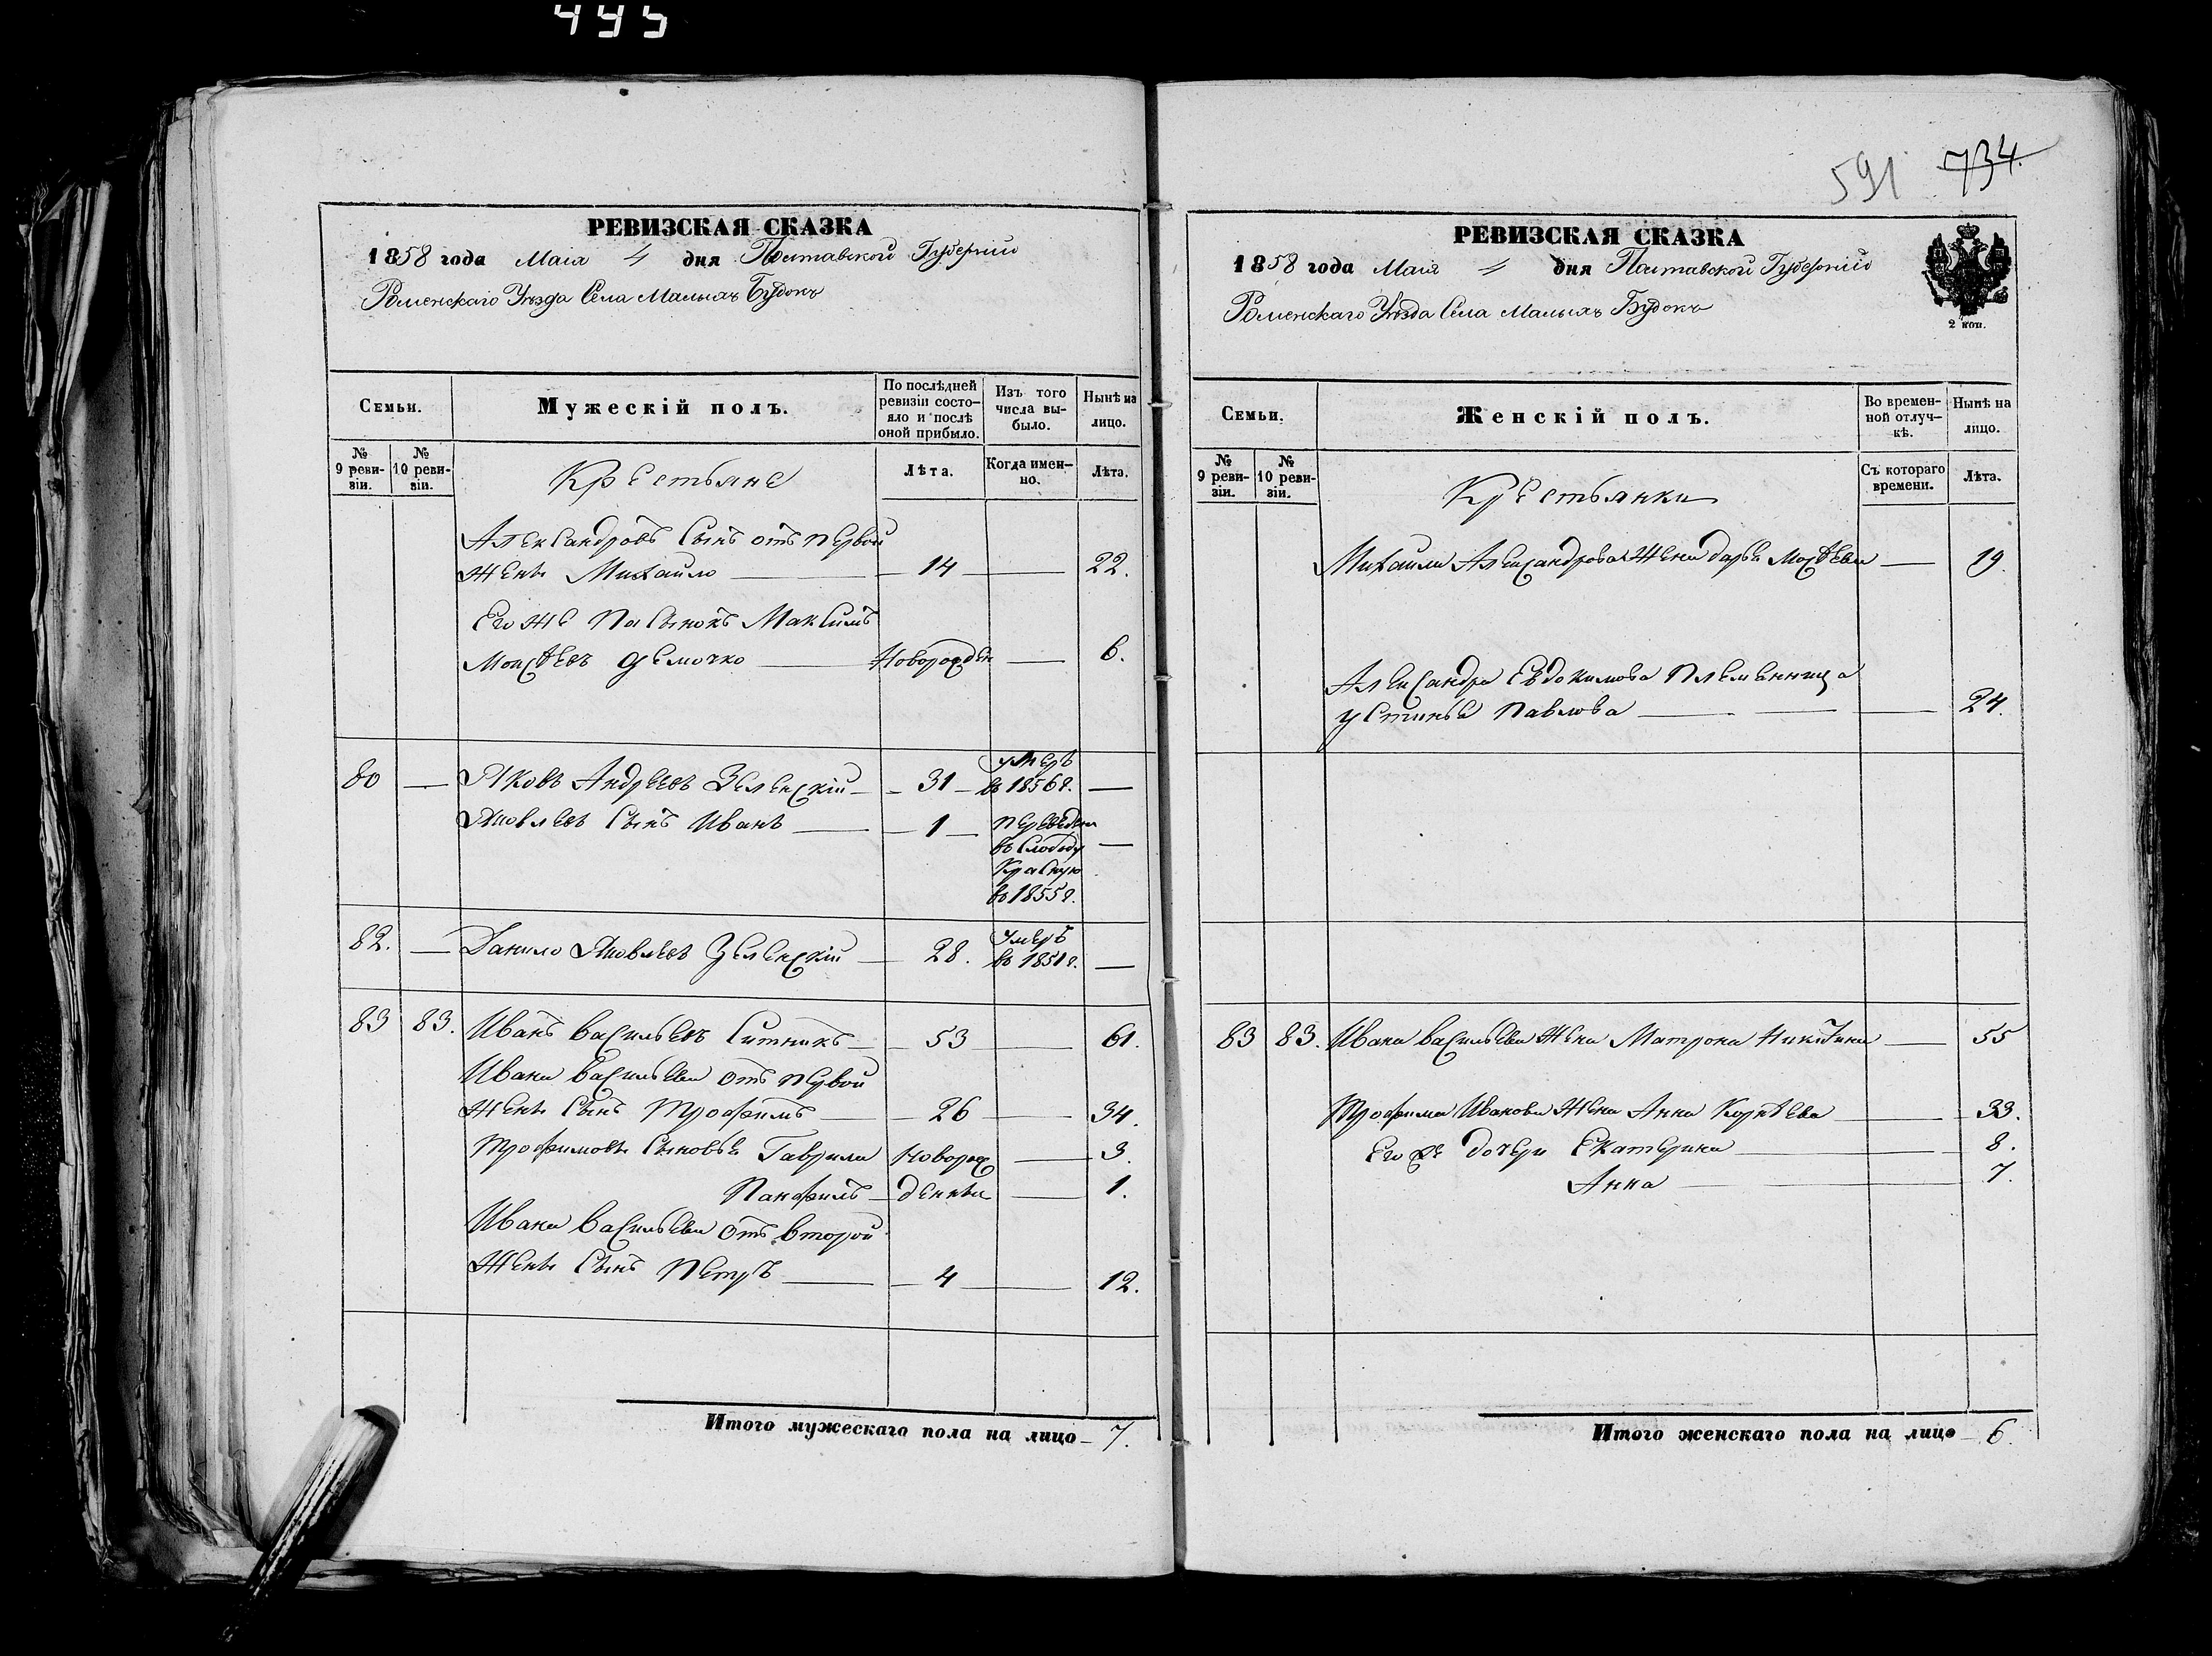 495
591 734.
РЕВИЗСКАЯ СКАЗКА
1858 года Маія 4 дня Полтавской Губерніи
Роменскаго Уезда Села Малыхъ Будокъ
Семьи.
Мужескій полъ.
По послѣдней ревизіи состо-
яло и послѣ
оной прибыло.
Изъ того
числа вы-
было.
Нынѣ на
лицо.
№
9 реви-
зіи.
№
10 реви-
зіи.
Крестьяне
Лѣта.
Когда имен-
но.
Лѣта.
Александровъ Сынъ отъ первой
жены Михайло — 14 — 22.
Его же Пасынокъ Максимъ
Моисѣевъ Демочко — Новорожден — 6.
80 — Яковъ Андреевъ Зеленскій — 31 — умеръ
въ 1856г. —
Яковлевъ Сынъ Иванъ — 1 — переведен
въ Слободу —
Красную
въ 1855г.
82. — Данило Яковлевъ Зеленскій — 28. Умеръ
въ 1851г. —
83 83. Иванъ Васильевъ Ситникъ — 53 — 61.
Ивана Васильева отъ первой
жены Сынъ Трофимъ — 26 — 34.
Трофимовы Сыновья Гаврила Новорож — 3.
Панфилъ — денные — 1.
Ивана Васильева отъ второй
жены Сынъ Петръ — 4 — 12.
Итого мужескаго пола на лицо — 7.
РЕВИЗСКАЯ СКАЗКА
1858 года Маія 4 дня Полтавской Губерніи
Роменскаго Уезда Села Малыхъ Будокъ
2 коп.
Семьи.
Женскій полъ.
Во времен-
ной отлуч-
кѣ.
Нынѣ на
лицо.
№
9 реви-
зіи.
№
10 реви-
зіи.
Крестьянки
Съ котораго
времени.
Лѣта.
Михайли Александрова Жена Дарья Моисѣева — 19.
Александра Евдокимова Племенница
Устинья Павлова — 24.
83 83. Ивана Васильева Жена Матрона Никитина — 55
Трофима Иванова Жена Анна Корнѣева — 33.
Его же дочери Екатерина — 8.
Анна — 7.
Итого женскаго пола на лицо — 6.